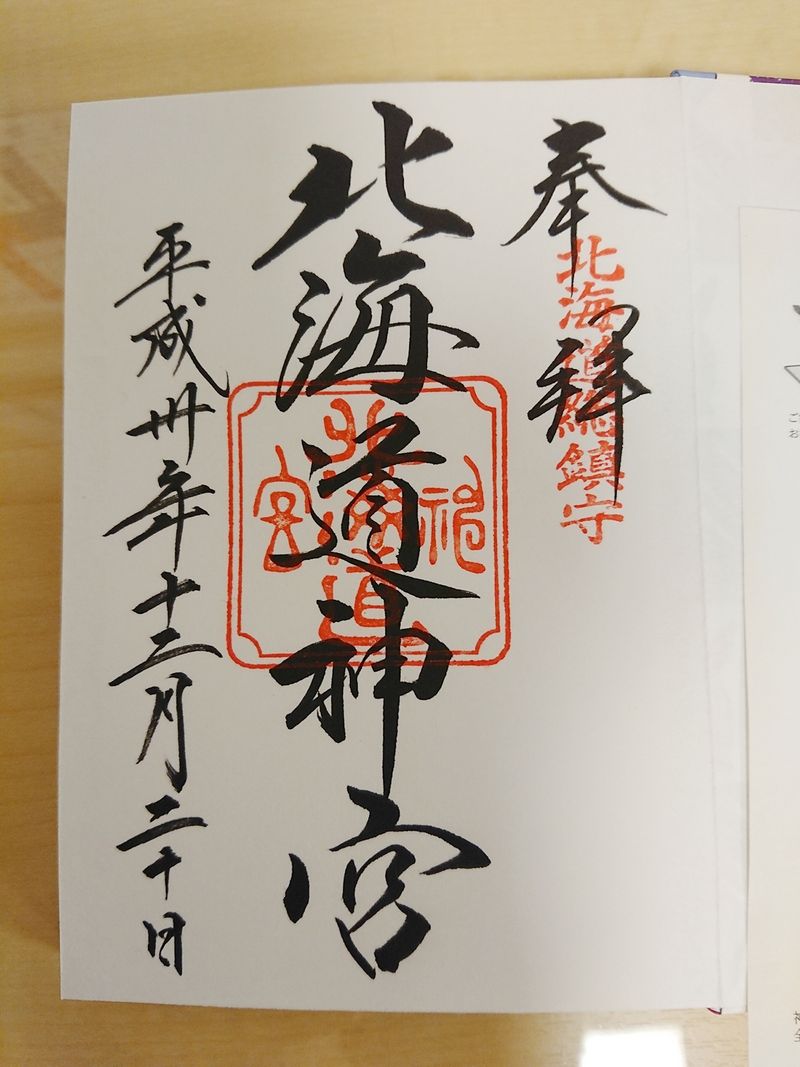 奉拝
北海道総鎮守
北海道神宮
北海道
神宮
平成卅年十二月二十日
ご
お